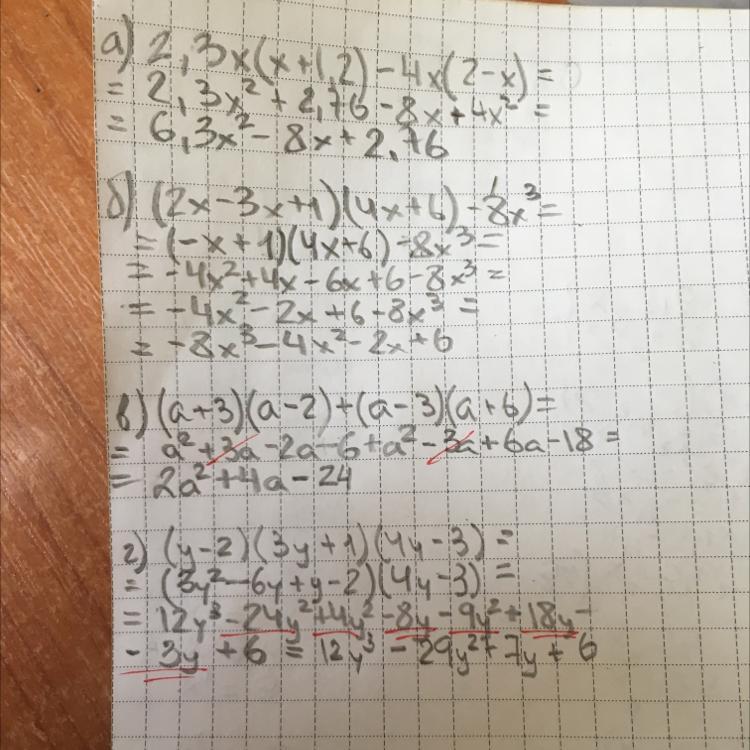 а) 2,3x(x+1,2)-4x(2-x)=
= 2,3x²+2,76-8x+4x² =
= 6,3x²-8x+2,76
б) (2x-3x+1)(4x+6)-8x³=
= (-x+1)(4x+6)-8x³=
= -4x²+4x-6x+6-8x³ =
= -4x²-2x+6-8x³ =
= -8x³-4x²-2x+6
в) (a+3)(a-2)+(a-3)(a+6)=
= a²+3a-2a-6+a²-3a+6a-18 =
= 2a²+4a-24
г) (y-2)(3y+1)(4y-3)=
= (3y²-6y+y-2)(4y-3)=
= 12y³-24y²+4y²-8y-9y²+18y-
- 3y+6 = 12y³-29y²+7y+6